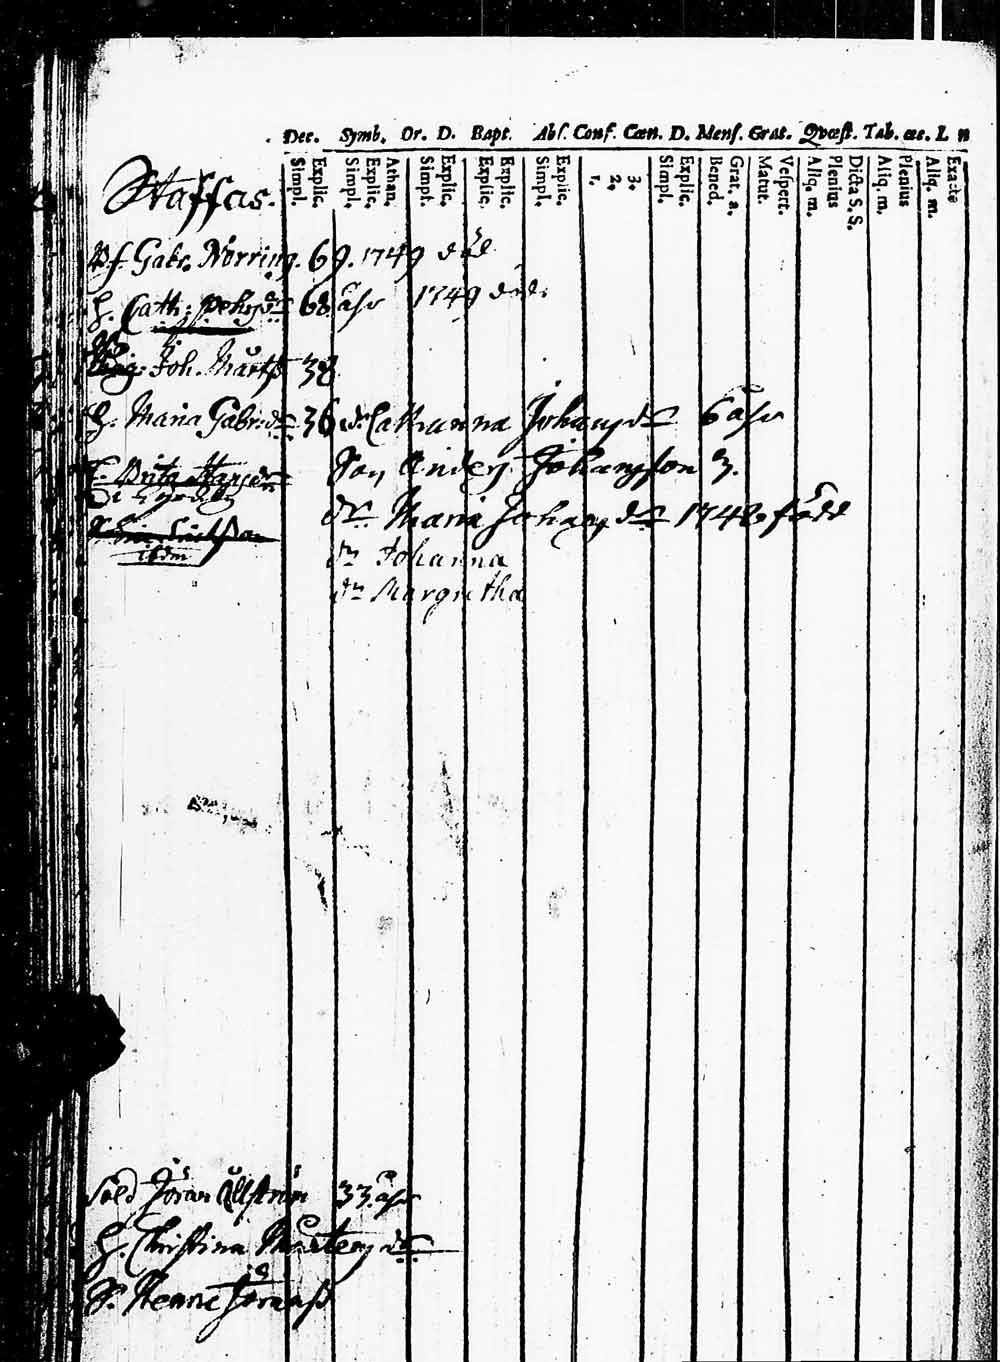 Dec. Symb. Or. D. Bapt. Abs. Conf. Cœn. D. Mens. Grat. Qvæst. Tab. œc. L n
Simpl. Explic. Simpl. Explic. Athan. Simpl. Explic. Explic. Explic. Simpl. Explic. 1. 2. 3. Simpl. Explic. Bened. Grat. a. Matut. Vespert. Aliq. m. Plenius Dicta S. S. Aliq. m. Plenius Aliq. m. Exacte
Staffas.
Gabr. Norring. 69. 1749 död
H. Cath: Pehrsdr 68 åhr 1749 död.
Joh. Mårtss 38
H. Maria Gabr:dr 36 dr Catharina Johansdr 6 åhr
Brita Son Anders Johansson 3.
dr Maria Johansdr 1748 född
ibdm dr Johanna
dr Margretha
Sold Jöran Ållström 33 åhr
H. Christina Mårtensdr
S. Jöranss